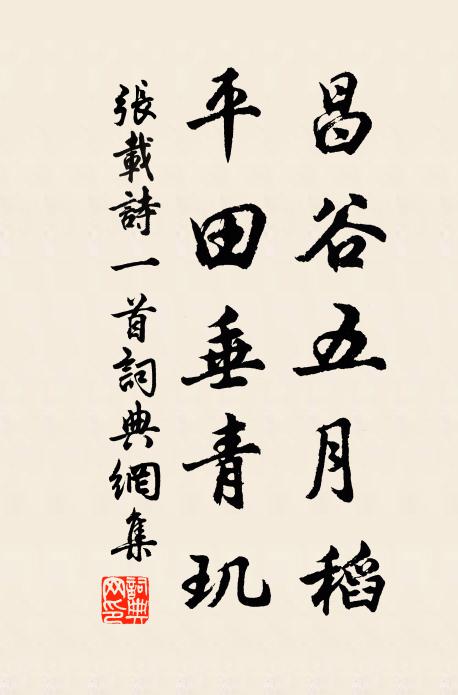 昌谷五月稻
平田垂青玑
張載詩一首詞典網集
詞典網印